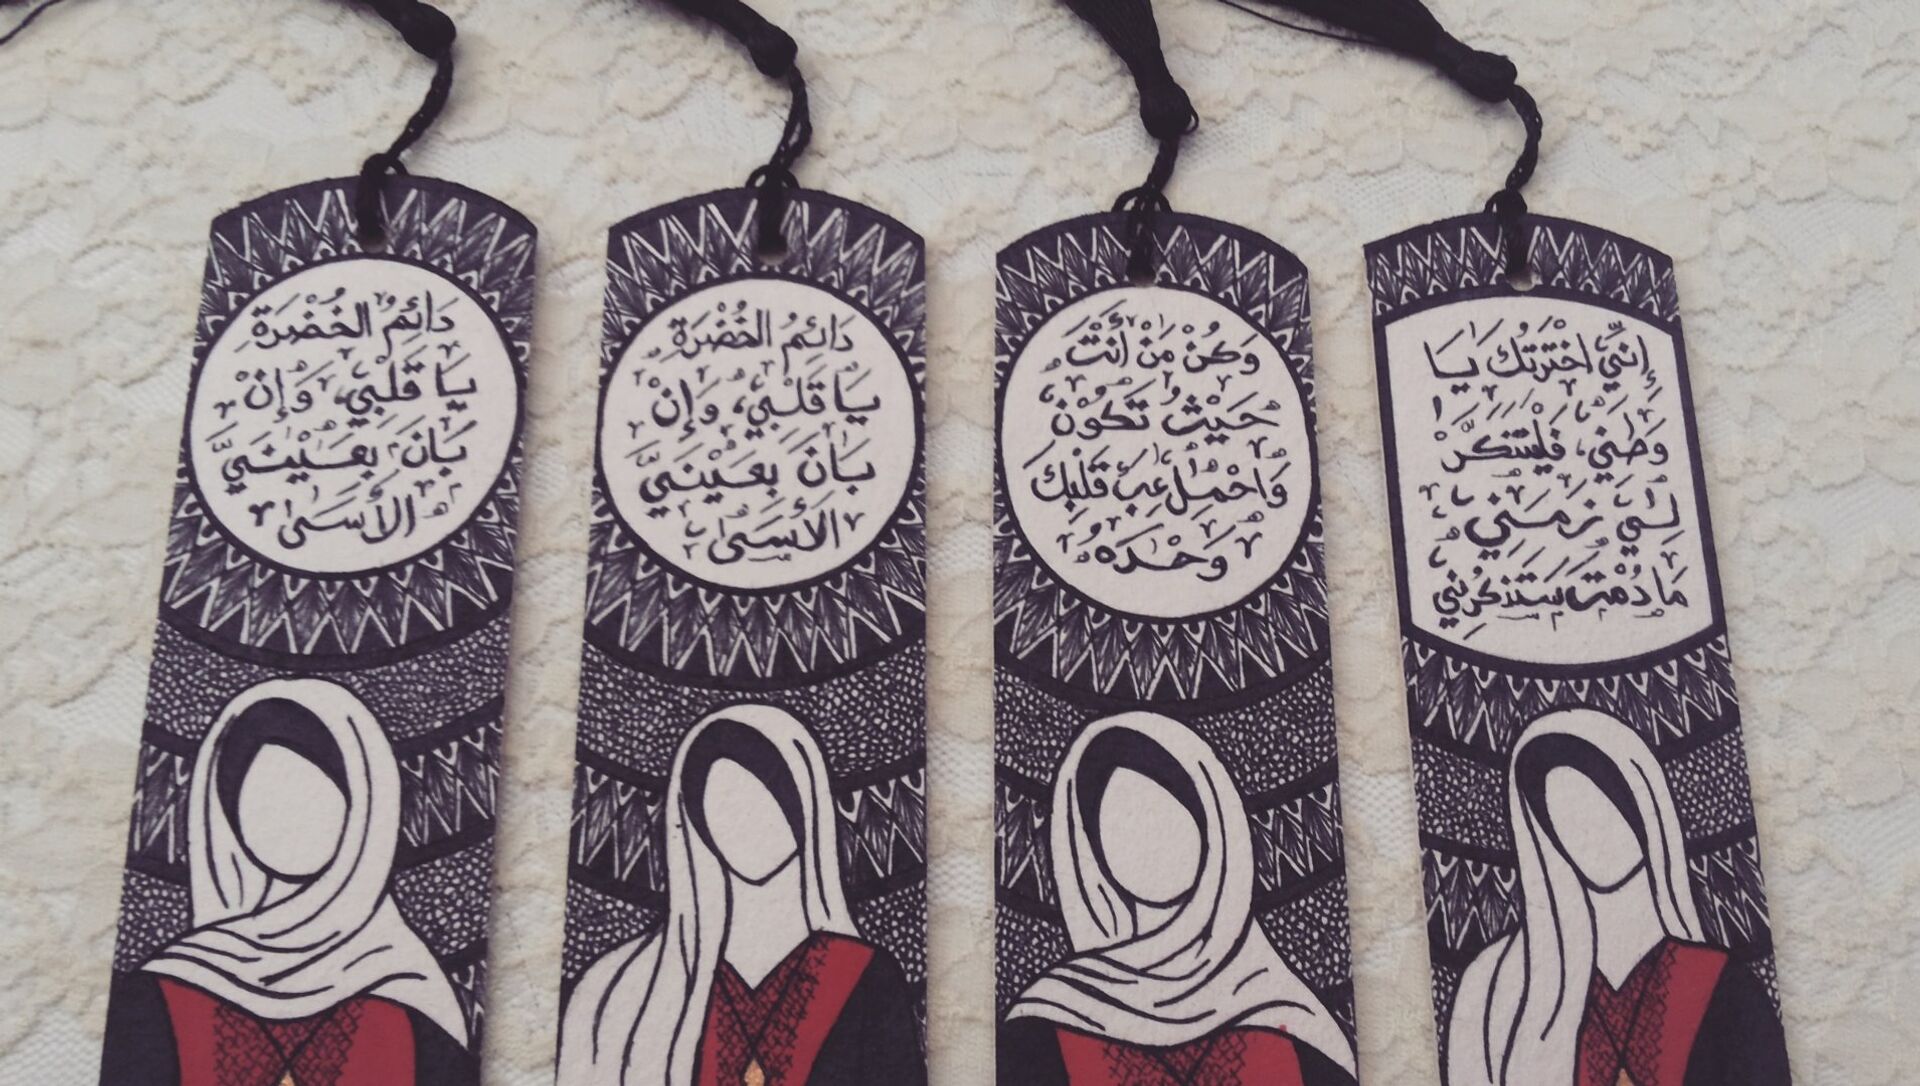 دَائِمُ الخُضْرَةِ
يَا قَلْبِي، وَإِنْ
بَانَ بِعَيْنَيَّ
الأَسَى
دَائِمُ الخُضْرَةِ
يَا قَلْبِي، وَإِنْ
بَانَ بِعَيْنَيَّ
الأَسَى
وَكُنْ مَنْ أَنْتَ
حَيْثُ تَكُوْنُ
وَاحْمِلْ عِبَءَ قَلْبِكَ
وَحْدَهُ
إِنِّي اخْتَرْتُكَ يَا
وَطَنِي، فَلْيَتَنَكَّرْ
لِي زَمَنِي
مَا دُمْتَ سَتَذْكُرُنِي